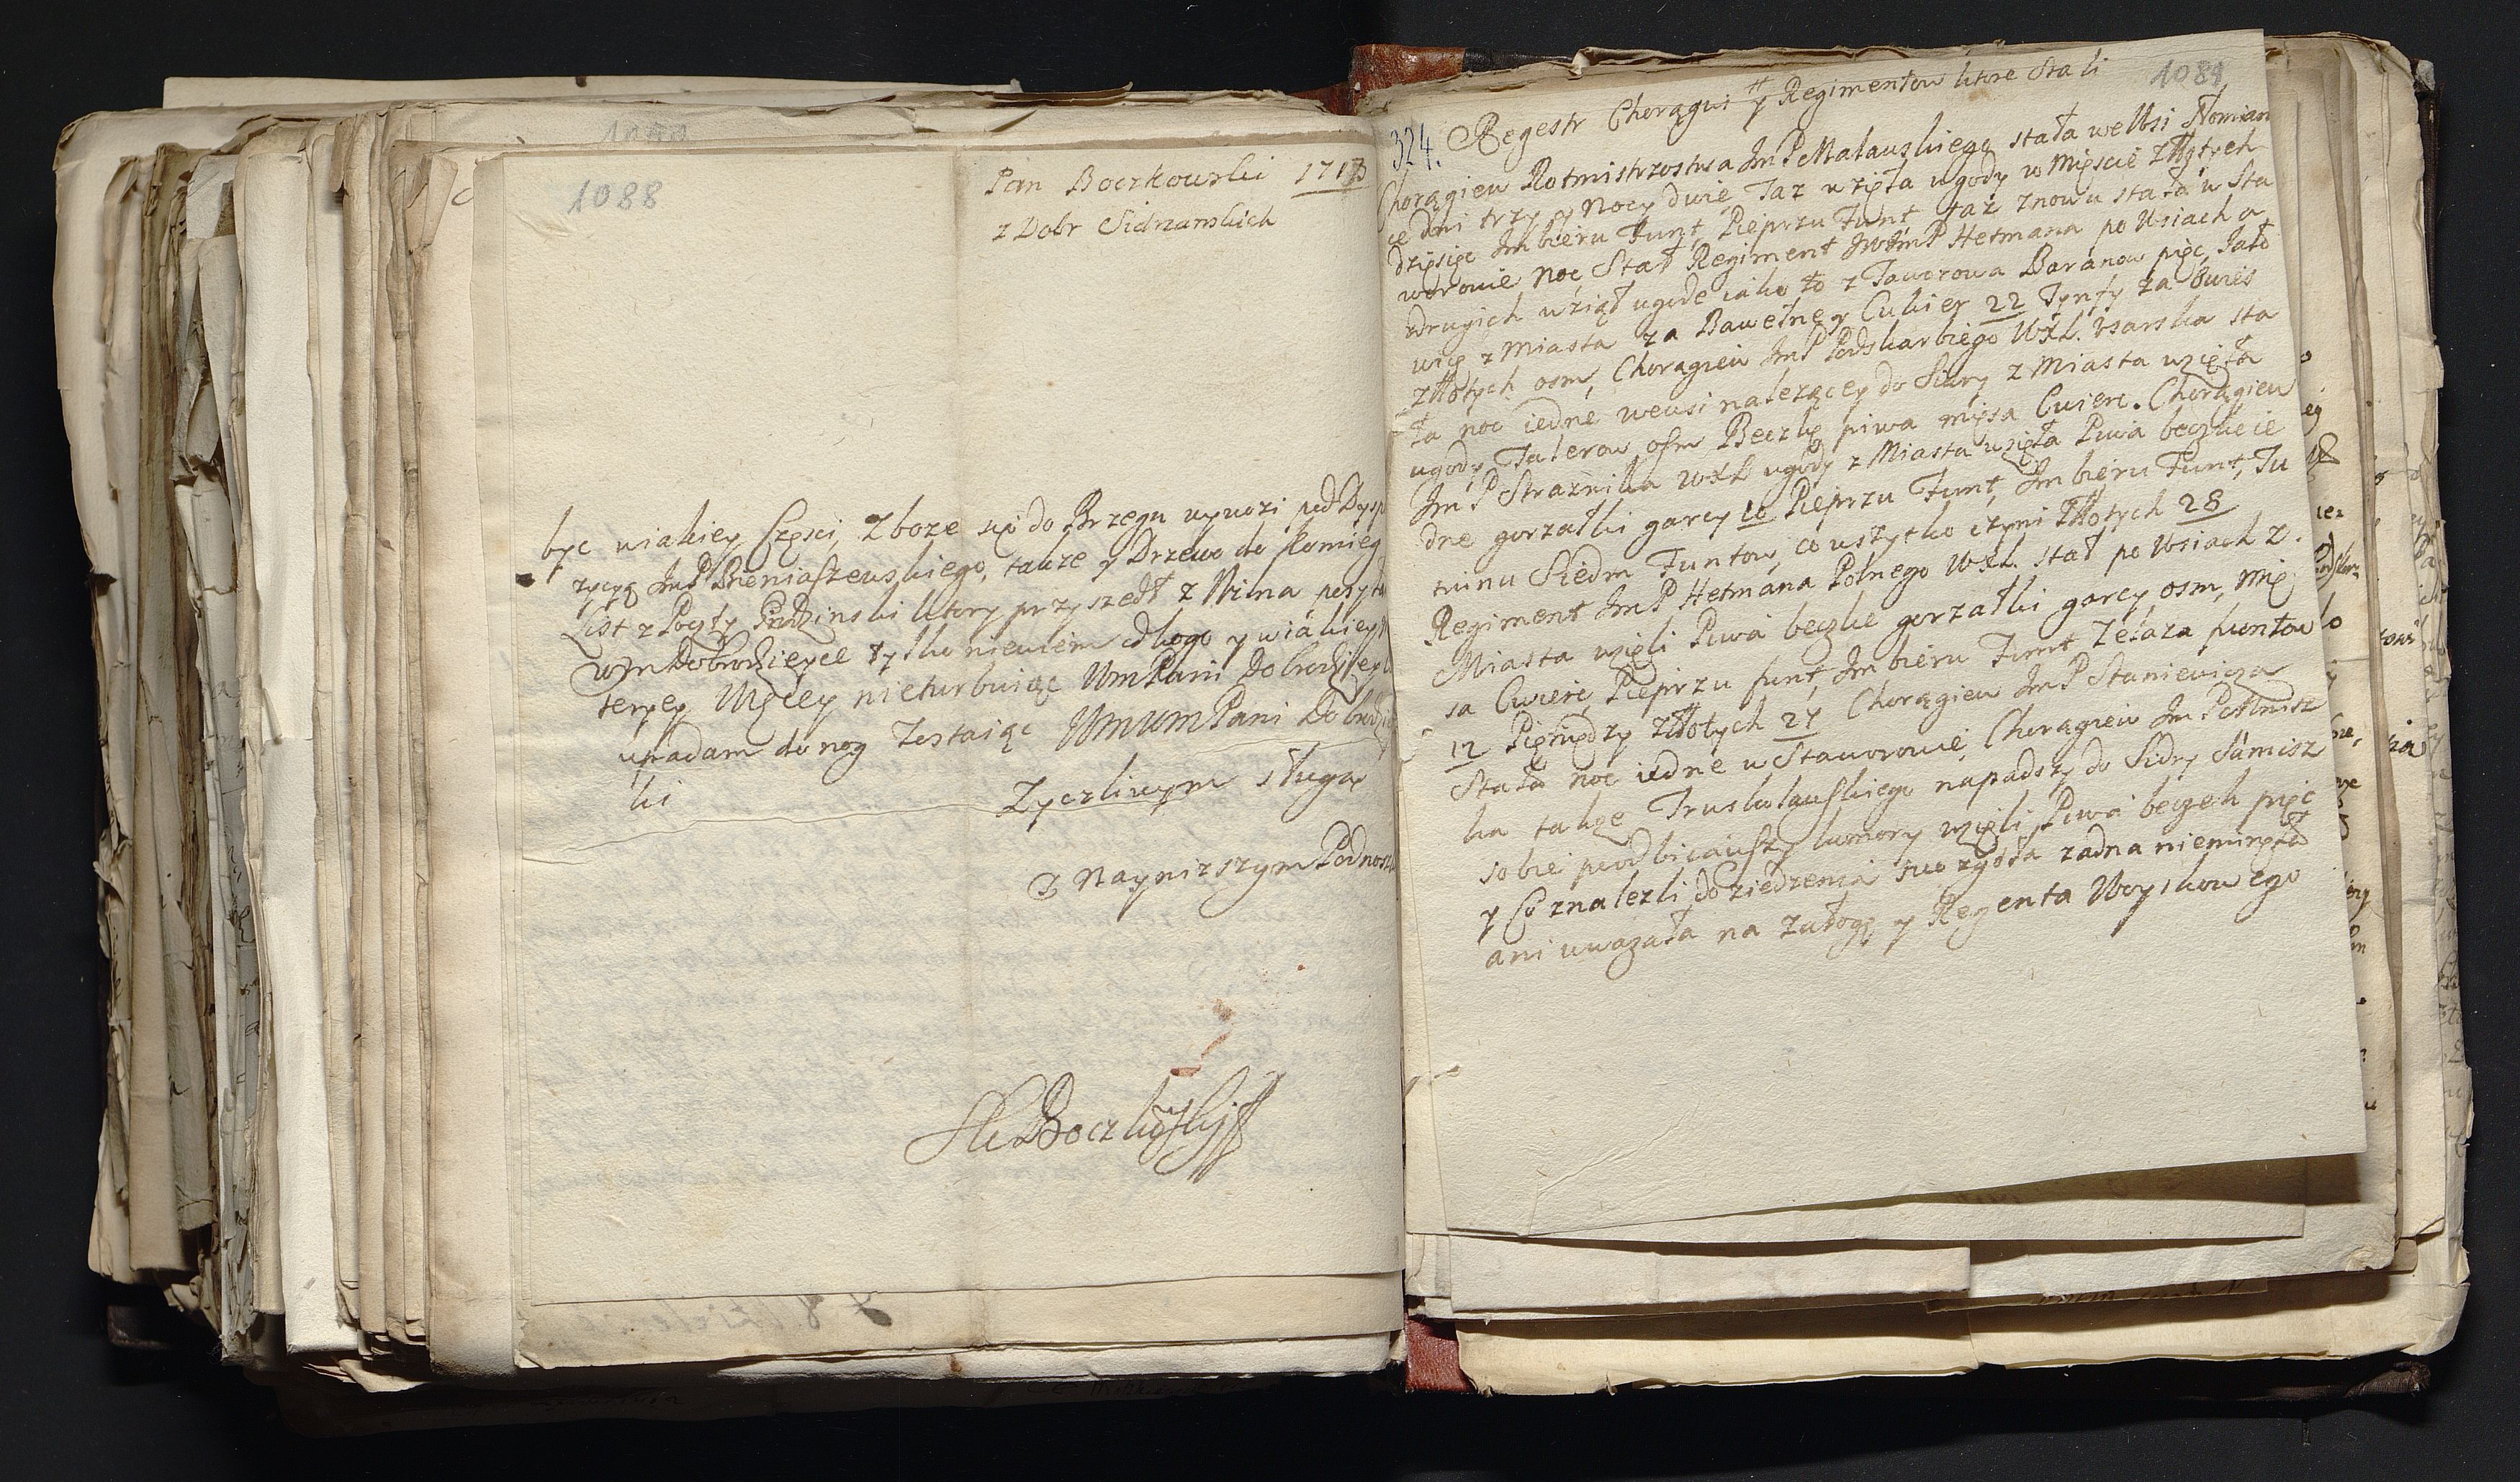 1088
Pan Boczkowski 1713
z Dobr Sidrzanskich
być wiakiey Części, Zboze się do Brzegu wywozi pod Dysp
zycyą ImP Bieniaszewskiego, takze y Drzewo do
List z Poczty Grodzinski ktory przyszedł z Wilna
WmDobrodzieyce tylko niewiem dlogo y wiakiey
teryey Więcey nieturbuiąc WmPani Dobrodzieyki
upadam do nog Zostaiąc WmWmPani Dobrodziey
ki
Zyczliwym sługą
Y Nayniszszym Podnosz
Boczkowskj
1089
324.
Regestr Chorągwi y Regimentow ktore stali
Chorągiew Rotmistrzostwa ImP Matauskiego stała we Wsi Nomian
ce dni trzy y Nocy dwie Taz wzięła ugody w Mieście Złłotych
dziesięc Imbieru Funt, Pieprzu Funt taz znowu stała w Sta
worowie Noc Stał Regiment JWImP Hetmana po Wsiach a
zdrugich wziął ugode iako to z Jaworowa Baranow pięc, Jało
wię z Miasta za Bawełne y Cukier 22 Tynfy za Owies
Złłotych osm, Chorągiew ImP Podskarbiego WXL. Usarska sta
ła noc iedne wewsi nalezącey do Sidry z Miasta wzięła
ugody Talerow osm Beczkę piwa mięsa Cwierc. Chorągiew
ImP Straznika WXL ugody z Miasta wzięła Piwa beczkie ie
dne gorzałki garcy 10 Pieprzu Funt, Imbieru Funt, Tu
tuinu Siedm Funtow, co wszytko czyni Złłotych 28
Regiment ImP Hetmana Polnego WXL. stał po Wsiach Z.
Miasta wzieli Piwa beczke gorzałki garcy osm, Mię
sa Cwierc, Pieprzu funt, Imbieru Funt Zelaza funtow
12 Pięniędzy Złłotych 24 Chorągiew ImP Staniewicza
Stała noc iedne w Staworowie, Chorągiew ImP Cześnisz
ka takze Truskolaskiego napadszy do Sidry Samisz
sobie poodbiiawszy kumory wzieli Piwa beczek pięc
y Co znalezli do ziedzenia zadna nieminęła
ani uwazała na załogę y Regenta Woyskowego